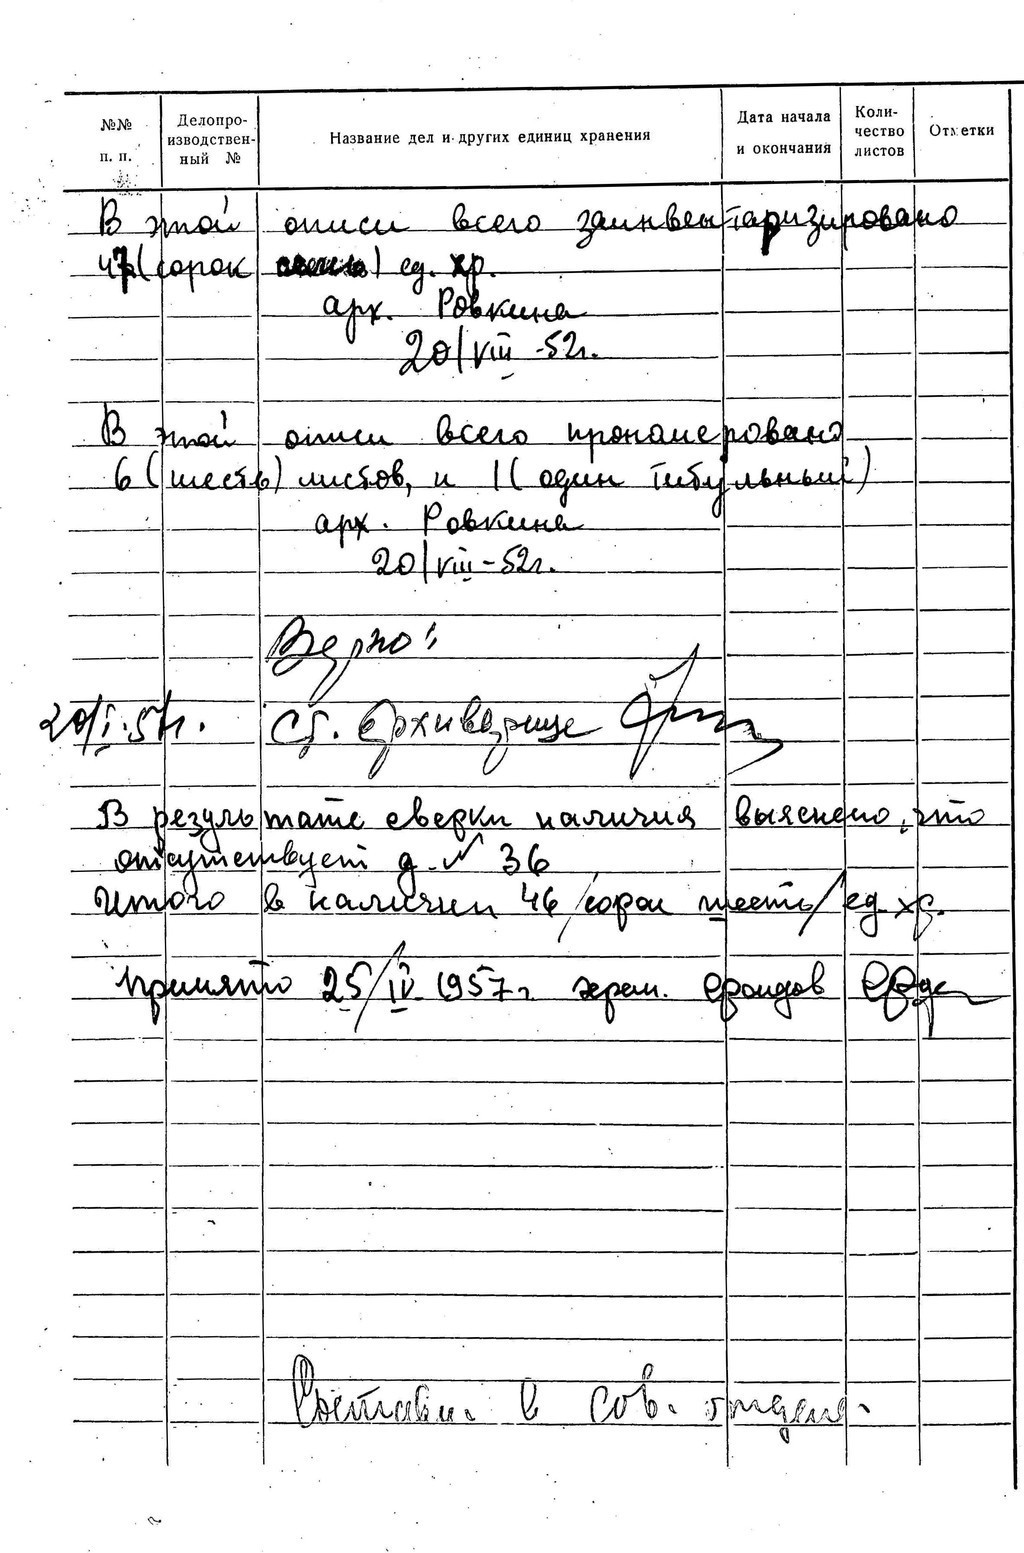 №№ п. п.
Делопро-
изводствен-
ный №
Название дел и других единиц хранения
Дата начала
и окончания
Коли-
чество
листов
Отметки
В этой описи всего заинвентаризировано
47 (сорок семь) ед. хр.
арх. Ровкина
20/VIII-52г.
В этой описи всего пронумеровано
6 (шесть) листов, и 1 (один титульный)
арх. Ровкина
20/VIII-52г.
Верно:
20/I.57г. Ст. Архиварище
В результате сверки наличия выяснено, что
отсутствует д. № 36
Итого в наличии 46 /сорок шесть/ ед. хр.
Принято 25/IV 1957г. хран. фондов
в сов. отделе.